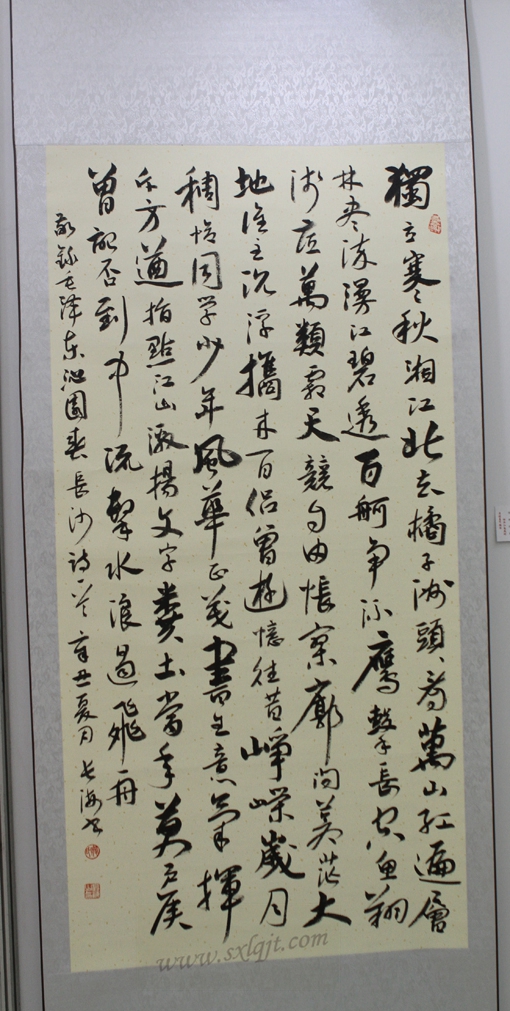 獨立寒秋湘江北去橘子洲頭看萬山紅遍層
林尽染漫江碧透百舸争流鷹擊長空魚翔
淺底萬類霜天競自由悵寥廓問蒼茫大
地誰主沉浮攜來百侣曾遊憶往昔崢嶸歲月
稠恰同学少年風華正茂書生意氣揮
斥方遒指點江山激揚文字糞土當年萬户侯
曾記否到中流擊水浪遏飛舟
敬錄毛泽东沁園春長沙詩一首 辛丑夏月 長海書
www.sxlqjt.com